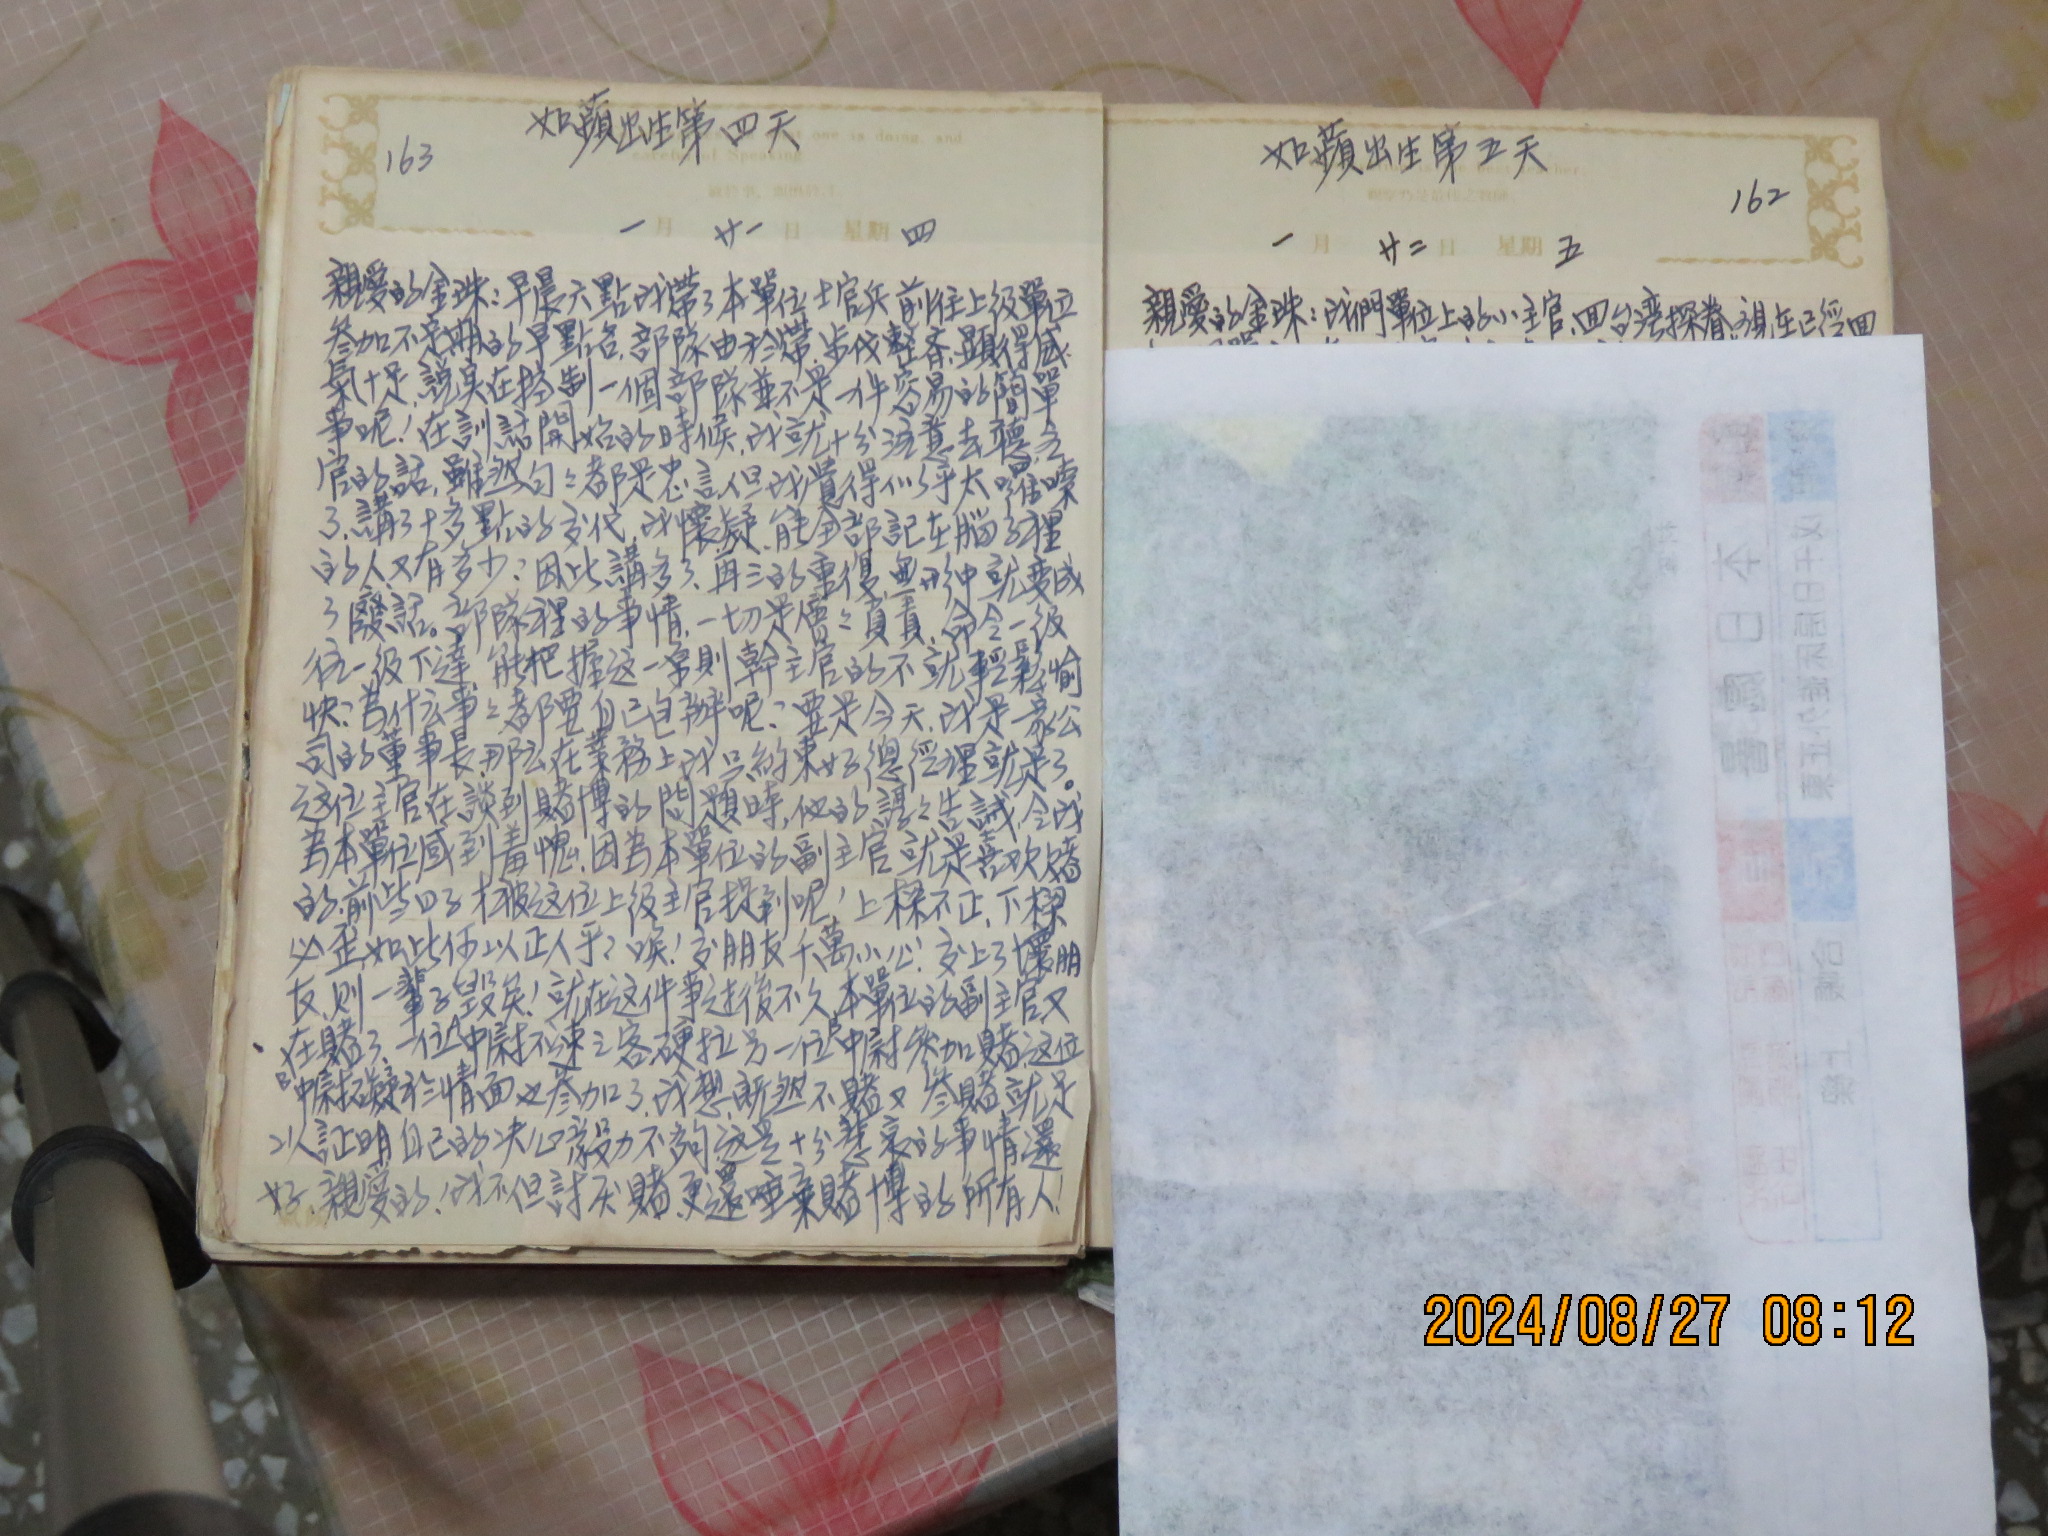 如蘋出生第四天
163
一月 廿一日 星期四
親愛的金珠：早晨六點我帶了本單位士官兵前往上級單位
參加不定期的早點名，部隊由我帶，步伐整齊，顯得威
氣十足，說實在控制一個部隊並不是一件容易的簡單
事呢！在訓話開始的時候，我就十分注意去聽主
官的話，雖然句々都是忠言，但我覺得似乎太囉嗦
了，講了十多點的交代，我懷疑，能全部記在腦子裡
的人又有多少？因此講多了，再三的重復，無形中就變成
了廢話。部隊裡的事情，一切是層々負責，命令一級
往一級下達，能把握這一原則幹主官的不就輕鬆愉
快？為什么事々都要自己包辦呢？要是今天，我是一家公
司的董事長，那么在業務上我只約束好總經理就是了。
这位主官在談到賭博的問題時，他的諄々告誡，令我
為本單位感到羞愧，因為本單位的副主官就是喜歡賭
的，前些日子才被這位上級主官提到呢！上樑不正，下樑
必歪，如此何以正人乎？唉！交朋友千萬小心！交上了壞朋
友，則一輩子毀矣！就在这件事过後不久，本單位的副主官又
在賭了，一位A中尉不速之客硬拉另一位B中尉參加賭，这位
B中尉礙於情面也參加了，我想，既然不賭又參賭，就足
以証明自己的決心毅力不夠，这是十分悲哀的事情，還
好，親愛的！我不但討厌賭，更還唾棄賭博的所有人！
如蘋出生第五天
162
一月 廿二日 星期五
親愛的金珠：我們單位上的小主官，回台湾探眷，現在已經回
2024/08/27 08:12